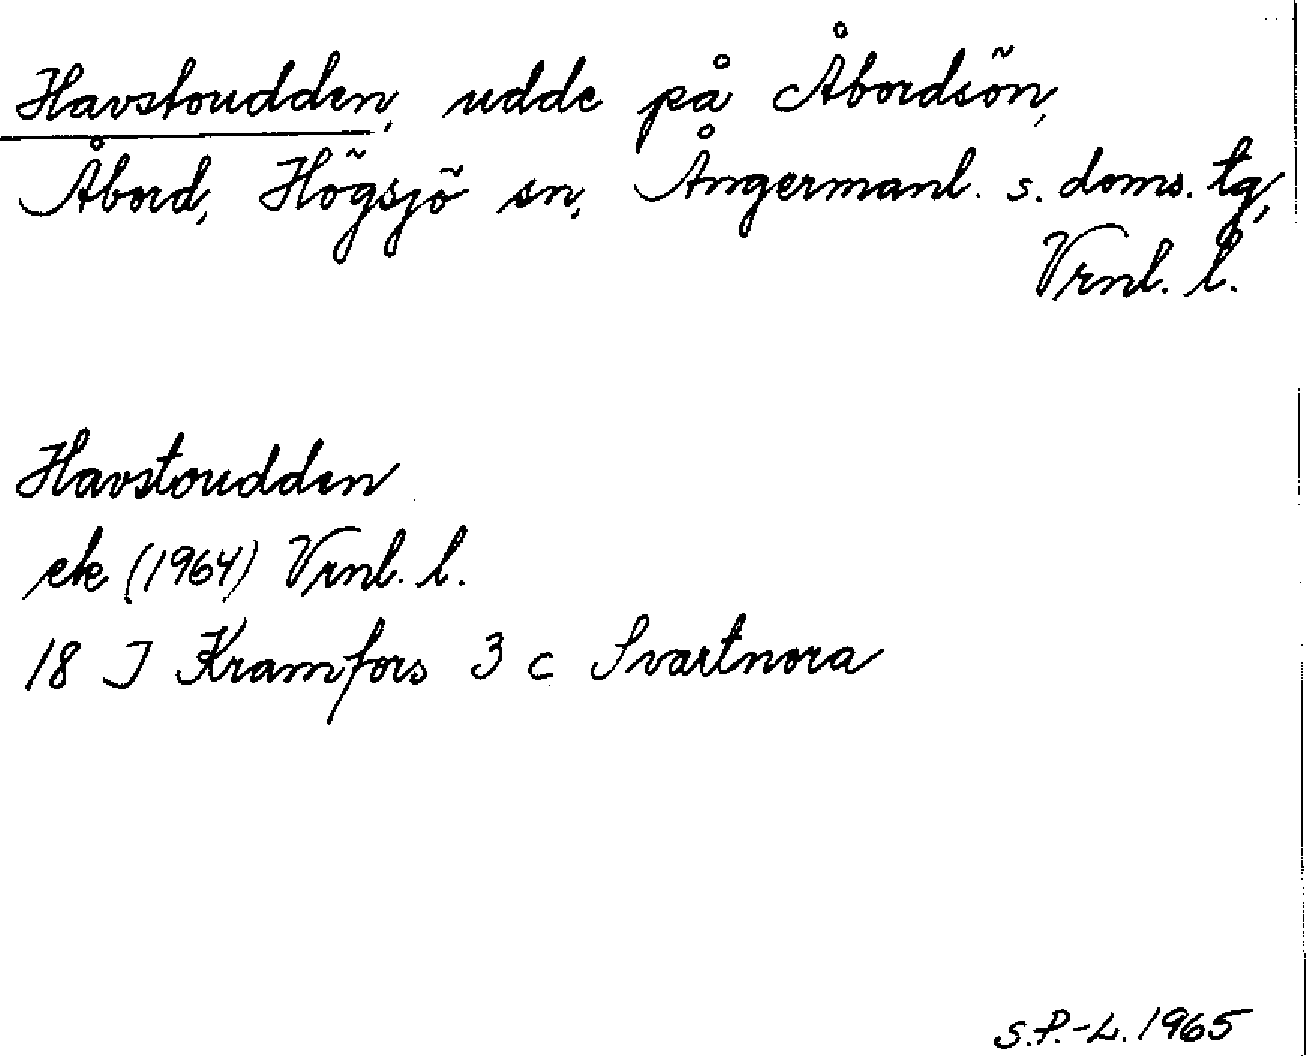 Havstoudden, udde på Åbordsön,
Åbord, Högsjö sn, Ångermanl. s. doms. tg,
Vrnl. l.
Havstoudden
ek (1964) Vrnl. l.
18 J Kramfors 3 c Svartnora
S.P.-L. 1965